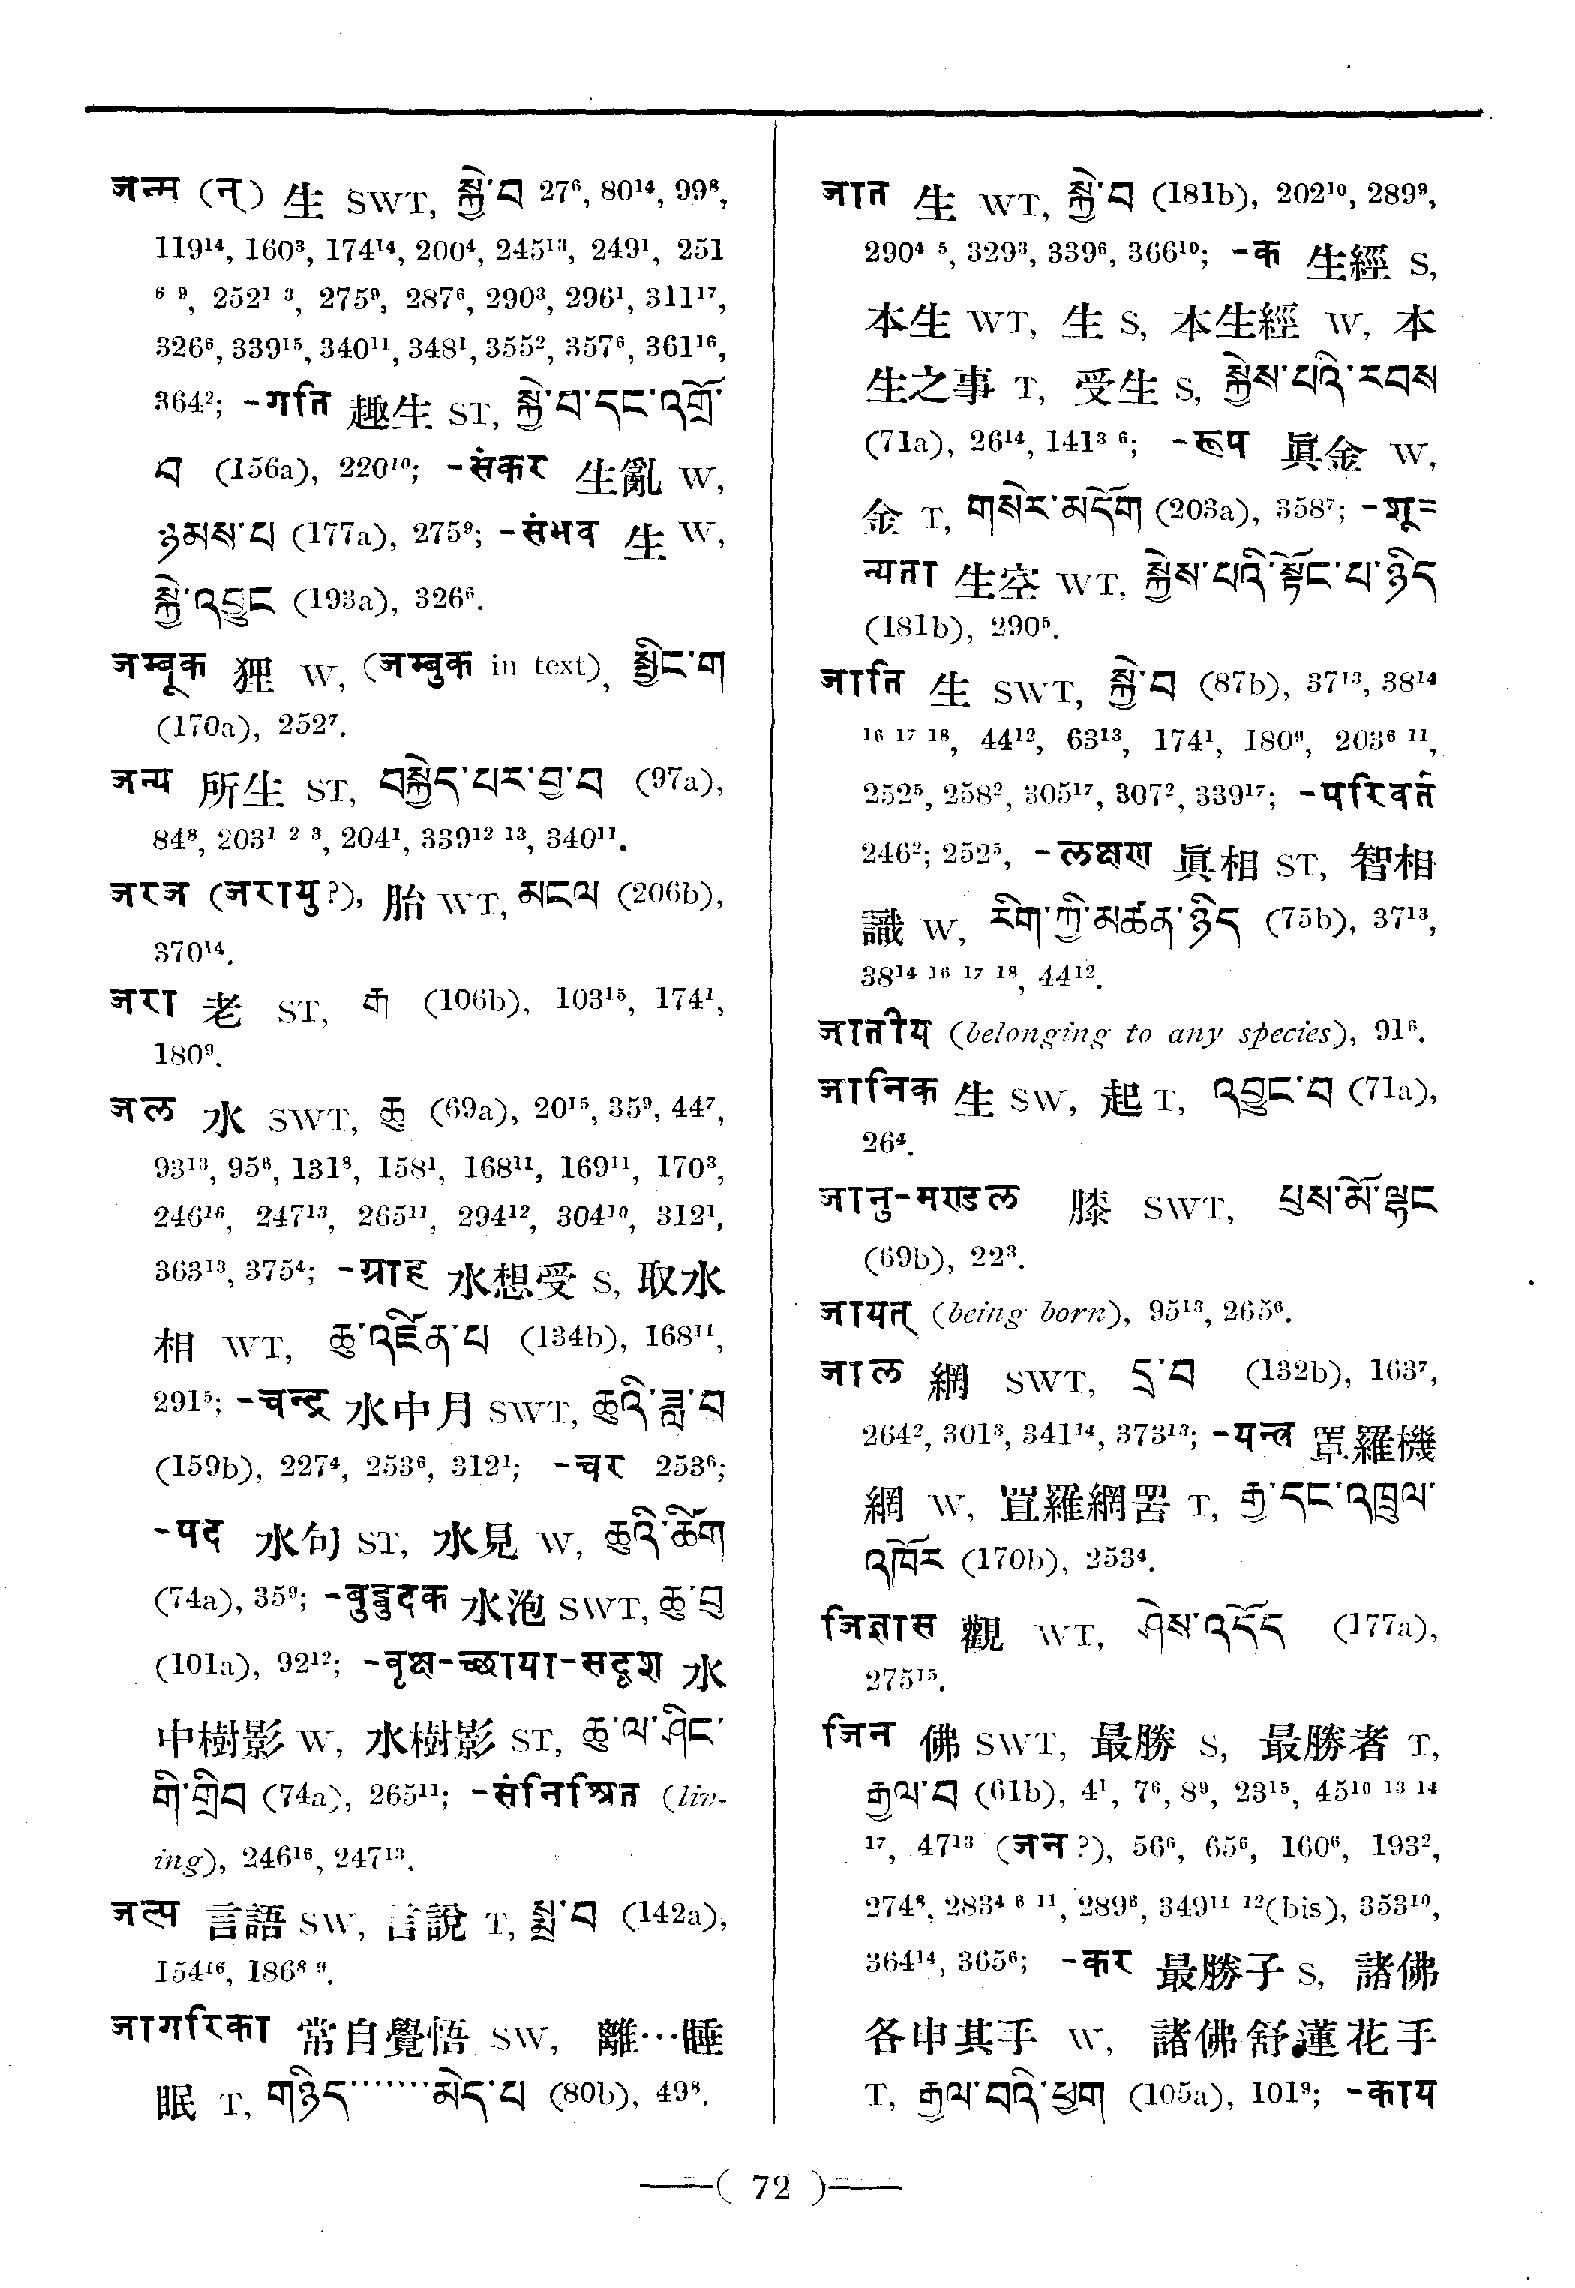 जन्म (न्) 生 SWT, སྐྱེ་བ 27⁶, 80¹⁴, 99⁸,
119¹⁴, 160³, 174¹⁴, 200⁴, 245¹³, 249¹, 251
⁶ ⁹, 252¹ ³, 275⁹, 287⁶, 290³, 296¹, 311¹⁷,
326⁶, 339¹⁵, 340¹¹, 348¹, 355², 357⁶, 361¹⁶,
364²; -गति 趣生 ST, སྐྱེ་བ་དང་འགྲོ་
བ (156a), 220¹⁰; -संकर 生亂 W,
ཉམས་པ (177a), 275⁹; -संभव 生 W,
སྐྱེ་འབྱུང (193a), 326⁶.
जम्बूक 狸 W, (जम्बुक in text), སྦྱིང་ག
(170a), 252⁷.
जन्य 所生 ST, བསྐྱེད་པར་བྱ་བ (97a),
84⁸, 203¹ ² ³, 204¹, 339¹² ¹³, 340¹¹.
जरज (जरायु?), 胎 WT, མངལ (206b),
370¹⁴.
जरा 老 ST, ག (106b), 103¹⁵, 174¹,
180⁹.
जल 水 SWT, ཆུ (69a), 20¹⁵, 35⁹, 44⁷,
93¹³, 95⁸, 131⁸, 158¹, 168¹¹, 169¹¹, 170³,
246¹⁶, 247¹³, 265¹¹, 294¹², 304¹⁰, 312¹,
363¹³, 375⁴; -ग्राह 水想受 S, 取水
相 WT, ཆུ་འཛིན་པ (134b), 168¹¹,
291⁵; -चन्द्र 水中月 SWT, ཆུའི་ཟླ་བ
(159b), 227⁴, 253⁶, 312¹; -चर 253⁶;
-पद 水句 ST, 水見 W, ཆུའི་ཚིག
(74a), 35⁹; -बुद्बुदक 水泡 SWT, ཆུ་བུ
(101a), 92¹²; -वृक्ष-च्छाया-सदृश 水
中樹影 W, 水樹影 ST, ཆུ་ལ་ཤིང་
གི་གྲིབ (74a), 265¹¹; -संनिश्रित (liv-
ing), 246¹⁶, 247¹³.
जल्प 言語 SW, 言說 T, སྨྲ་བ (142a),
154¹⁶, 186⁸ ⁹.
जागरिका 常自覺悟 SW, 離…睡
眠 T, གཉིད········མེད་པ (80b), 49⁸.
जात 生 WT, སྐྱེ་བ (181b), 202¹⁰, 289⁹,
290⁴ ⁵, 329³, 339⁶, 366¹⁰; -क 生經 S,
本生 WT, 生 S, 本生經 W, 本
生之事 T, 受生 S, སྐྱེས་པའི་རབས
(71a), 26¹⁴, 141³ ⁶; -रूप 眞金 W,
金 T, གསེར་མདོག (203a), 358⁷; -शू=
न्यता 生空 WT, སྐྱེས་པའི་སྟོང་པ་ཉིད
(181b), 290⁵.
जाति 生 SWT, སྐྱེ་བ (87b), 37¹³, 38¹⁴
¹⁶ ¹⁷ ¹⁸, 44¹², 63¹³, 174¹, 180⁹, 203⁶ ¹¹,
252⁵, 258², 305¹⁷, 307², 339¹⁷; -परिवर्त
246²; 252⁵, -लक्षण 眞相 ST, 智相
識 W, རིག་ཀྱི་མཚན་ཉིད (75b), 37¹³,
38¹⁴ ¹⁶ ¹⁷ ¹⁸, 44¹².
जातीय (belonging to any species), 91⁶.
जानिक 生 SW, 起 T, འབྱུང་བ (71a),
26⁴.
जानु-मण्डल 膝 SWT, པུས་མོ་ལྷང
(69b), 22³.
जायत् (being born), 95¹³, 265⁶.
जाल 網 SWT, དྲ་བ (132b), 163⁷,
264², 301³, 341¹⁴, 373¹³; -यन्त्र 罝羅機
網 W, 罝羅網罟 T, རྒྱ་དང་འཁྲུལ་
འཁོར (170b), 253⁴.
जिज्ञास 觀 WT, ཤེས་འདོད (177a),
275¹⁵.
जिन 佛 SWT, 最勝 S, 最勝者 T,
རྒྱལ་བ (61b), 4¹, 7⁶, 8⁹, 23¹⁵, 45¹⁰ ¹³ ¹⁴
¹⁷, 47¹³ (जन ?), 56⁶, 65⁶, 160⁶, 193²,
274⁸, 283⁴ ⁶ ¹¹, 289⁶, 349¹¹ ¹²(bis), 353¹⁰,
364¹⁴, 365⁶; -कर 最勝子 S, 諸佛
各申其手 W, 諸佛舒蓮花手
T, རྒྱལ་བའི་ཕྱག (105a), 101⁹; -काय
—( 72 )—